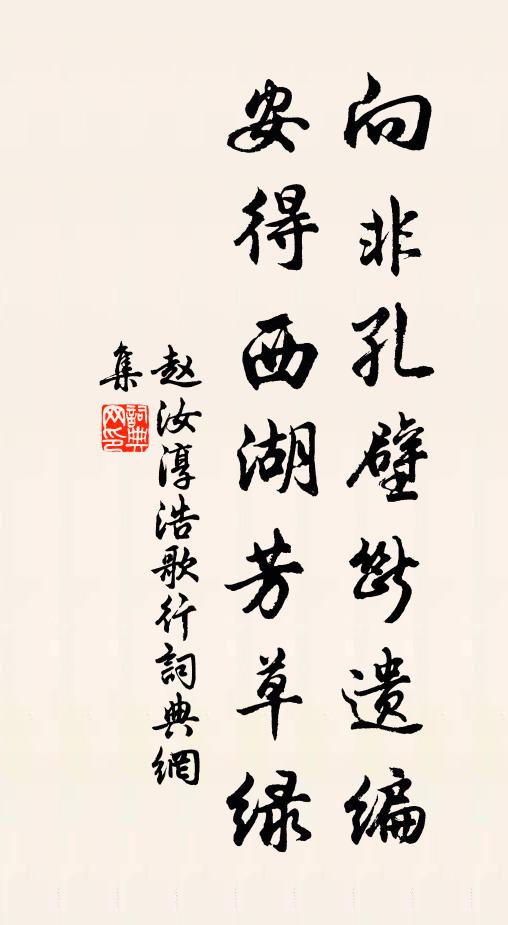 向非孔壁斷遗编
安得西湖芳草绿
赵汝淳浩歌行詞典網
集
詞典网印